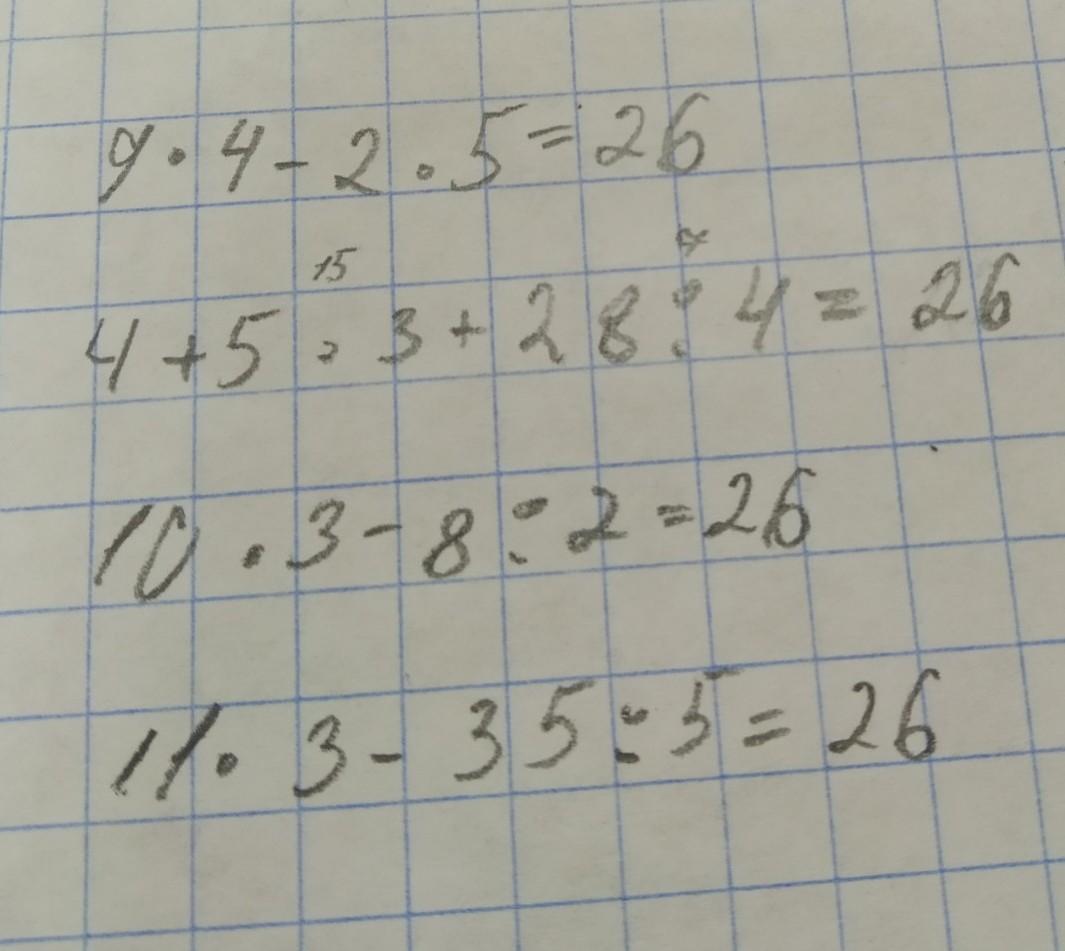 9 · 4 - 2 · 5 = 26
15 7
4 + 5 · 3 + 28 : 4 = 26
10 · 3 - 8 : 2 = 26
11 · 3 - 35 : 5 = 26